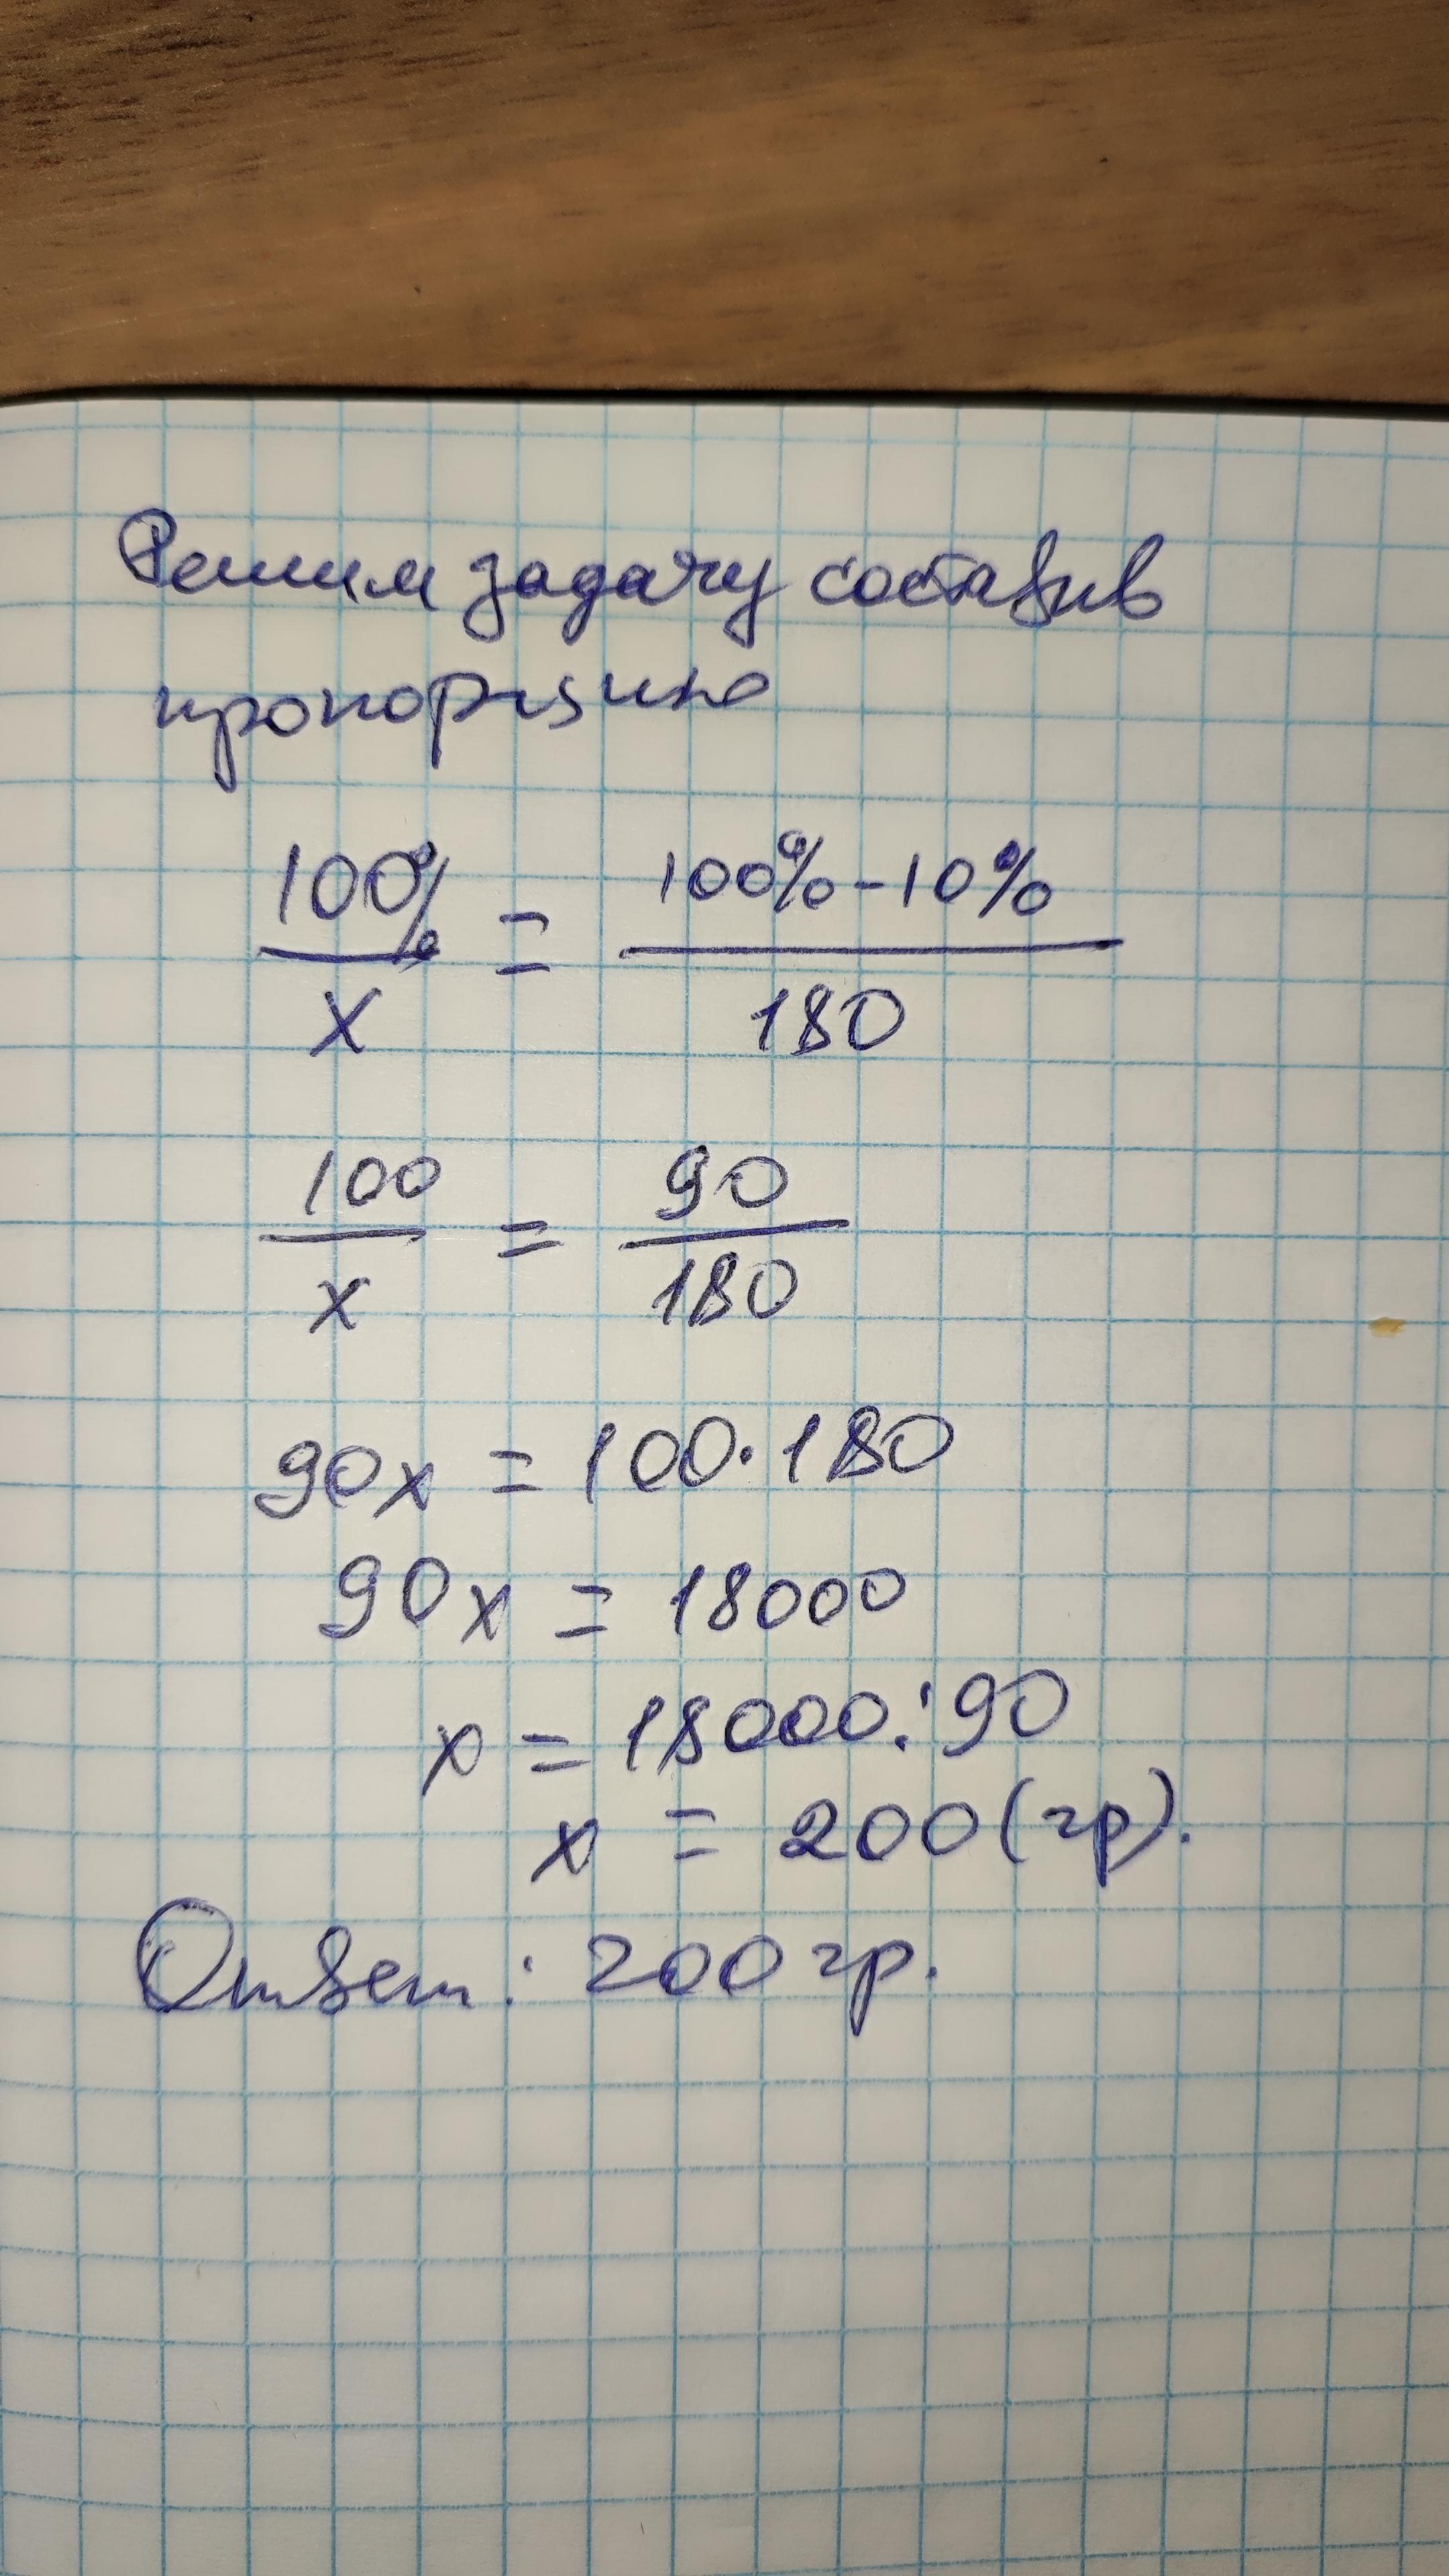 Решим задачу составив
пропорцию
100% / x = 100% - 10% / 180
100 / x = 90 / 180
90x = 100·180
90x = 18000
x = 18000:90
x = 200(гр).
Ответ: 200 гр.